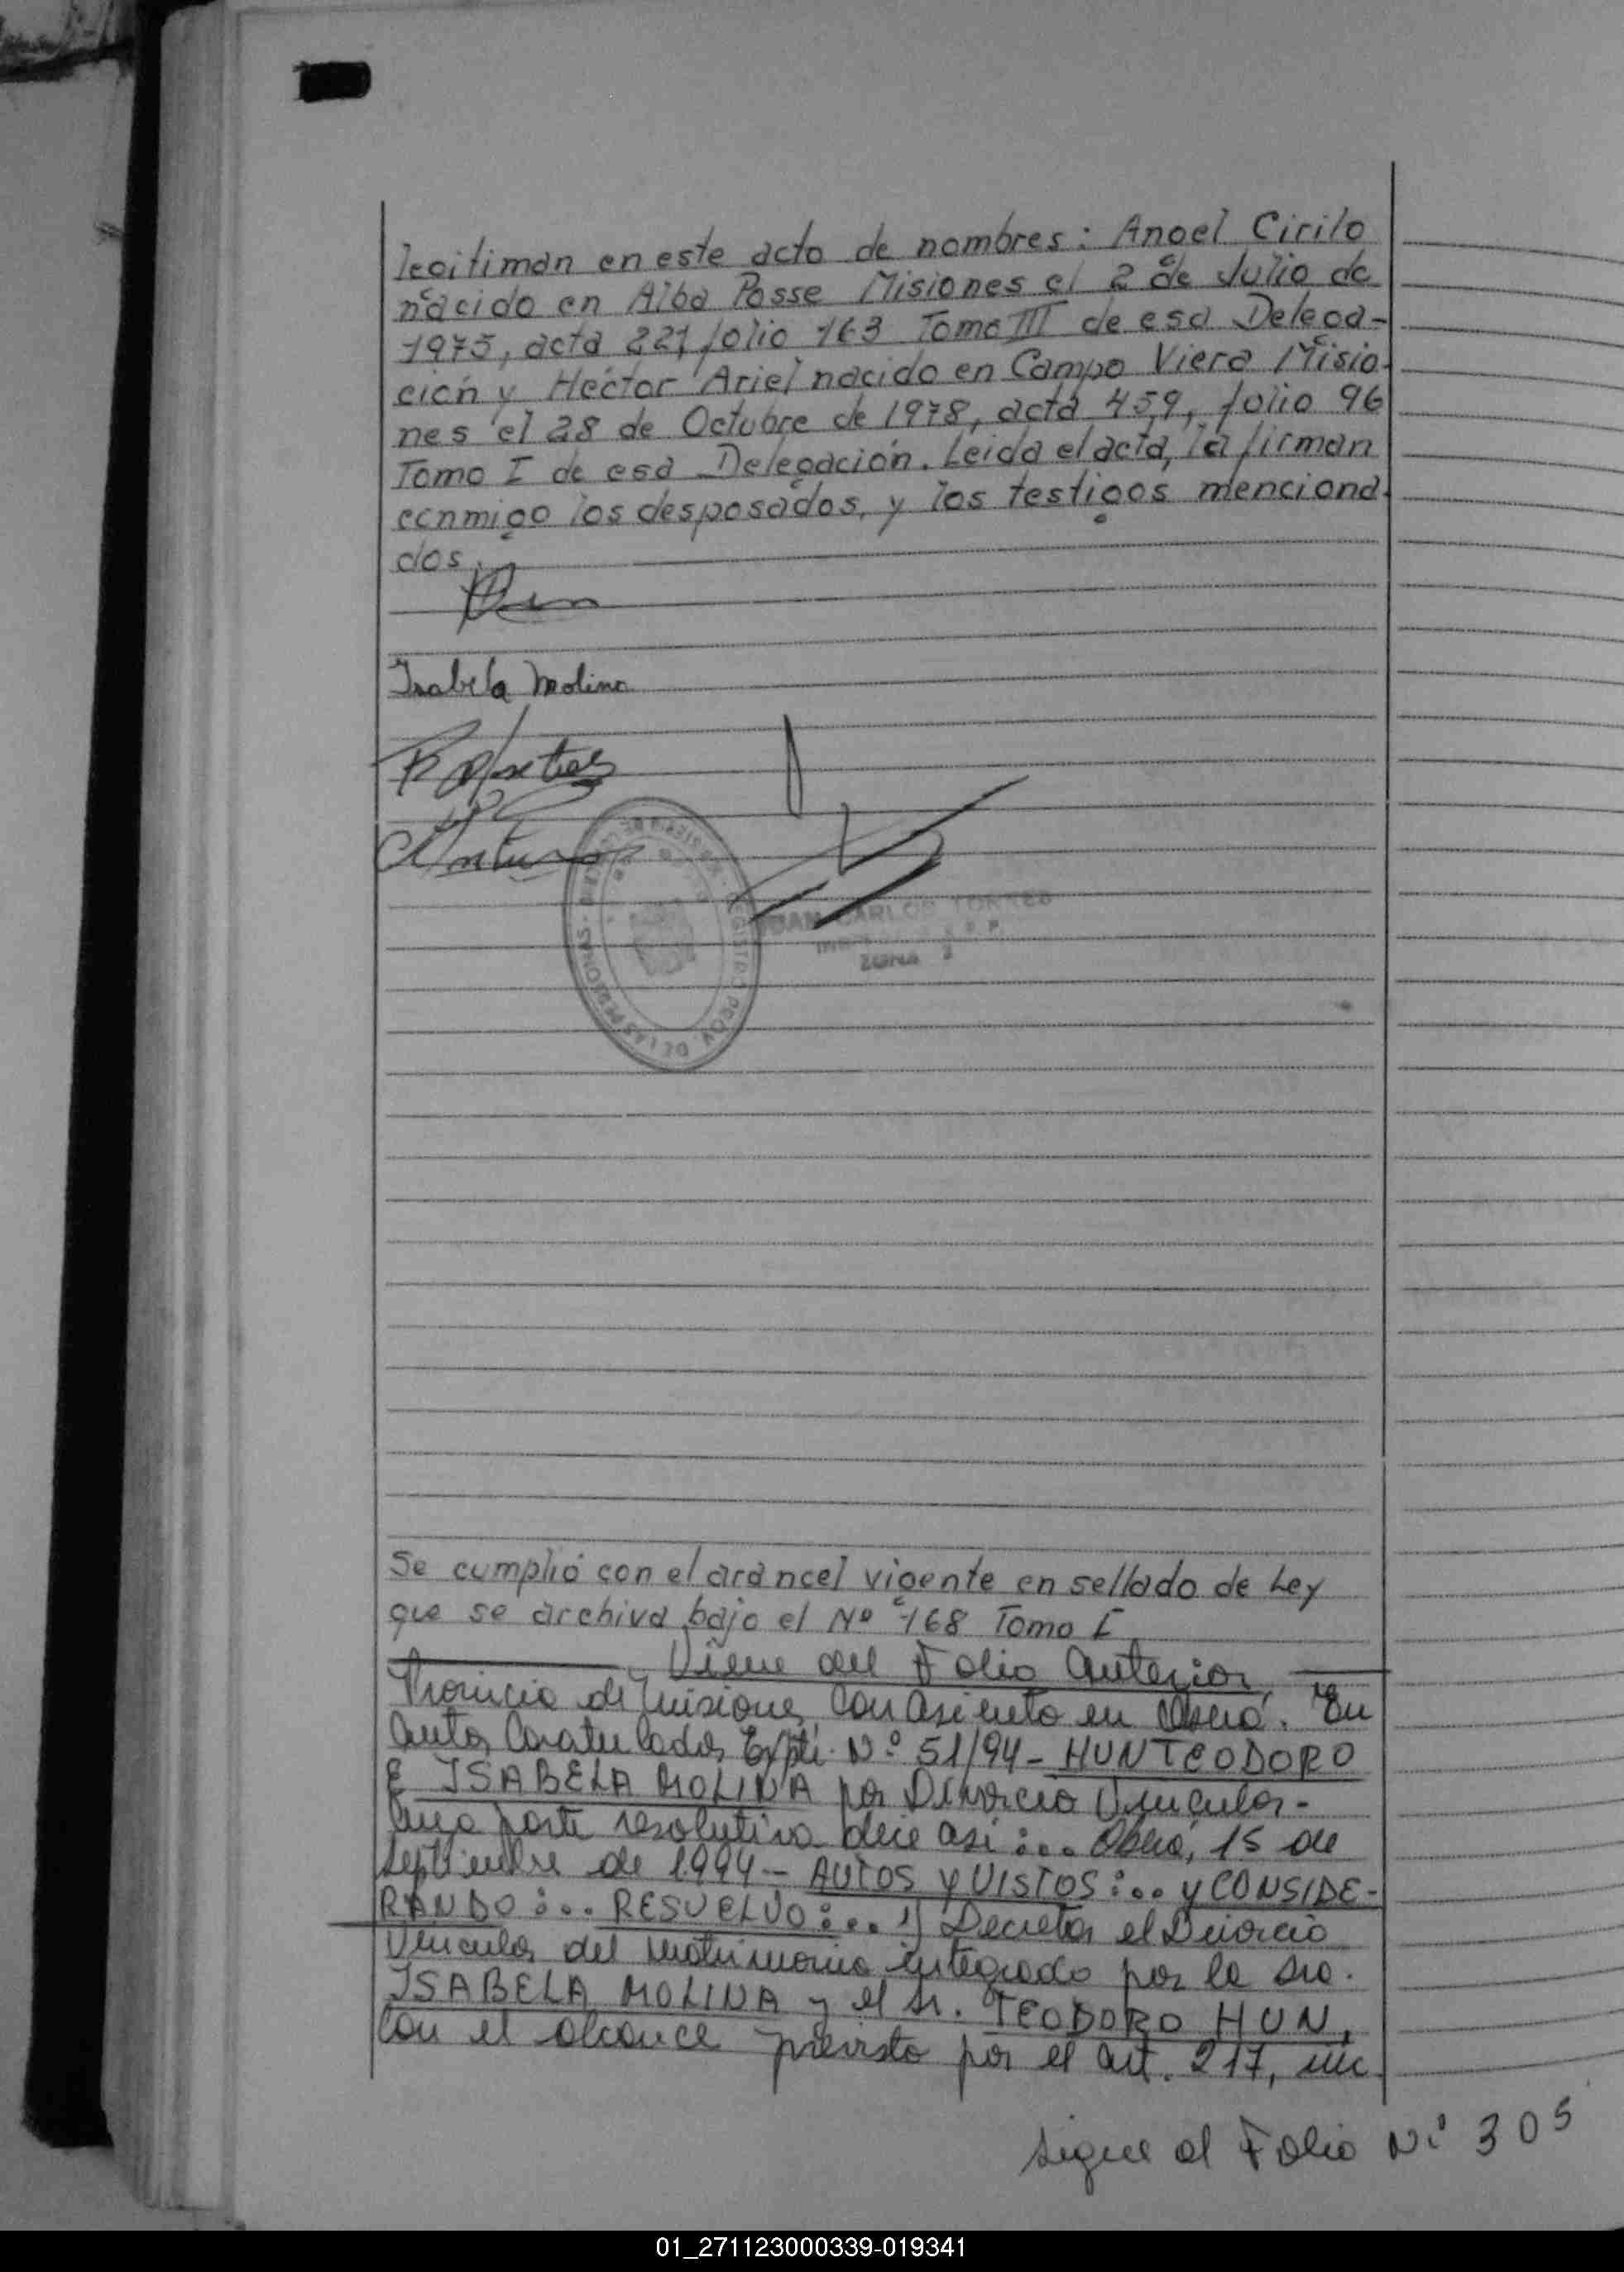 legitiman en este acto de nombres: Angel Cirilo
nacido en Alba Posse Misiones el 2 de Julio de
1975, acta 221 folio 163 Tomo III de esa Delega-
ción y Héctor Ariel nacido en Campo Viera Misio-
nes el 28 de Octubre de 1978, acta 459, folio 96
Tomo I de esa Delegación. Leida el acta, la firman
conmigo los desposados, y los testigos menciona-
dos.
Isabela Molina
JUAN CARLOS TORRES
ZONA 2
Se cumplió con el arancel vigente en sellado de Ley
que se archiva bajo el Nº 168 Tomo I
Viene del Folio Anterior
Provincia de Misiones, con asiento en Oberá. En
autos Caratulados Expte. N° 51/94 - HUN TEODORO
E ISABELA MOLINA por Divorcio Vincular -
Cuya parte resolutiva dice así:... Oberá, 15 de
Septiembre de 1994 - AUTOS Y VISTOS:... y CONSIDE-
RANDO:... RESUELVO:... 1) Decretar el Divorcio
Vincular del matrimonio integrado por la sra.
ISABELA MOLINA y el Sr. TEODORO HUN,
con el alcance previsto por el art. 217, inc
Sigue al Folio N° 305
01_271123000339-019341